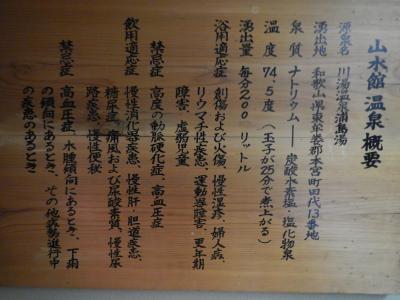 山水館 温泉概要
源泉名 川湯温泉浦島湯
湧出地 和歌山県東牟婁郡本宮町田代13番地
泉質 ナトリウム——炭酸水素塩・塩化物泉
温度 74.5度（玉子が25分で煮上がる）
湧出量 毎分200リットル
浴用適応症 創傷および火傷、慢性湿疹、婦人病、
リウマチ性疾患、運動器障害、更年期
障害、虚弱児童
禁忌症 高度の動脈硬化症、高血圧症
飲用適応症 慢性消化器疾患、慢性肝・胆道疾患、
糖尿病、痛風および尿酸素質、慢性尿
路疾患、慢性便秘
禁忌症 高血圧症、水腫傾向にあるとき、下痢
の傾向にあるとき、その他病勢進行中
の疾患のあるとき